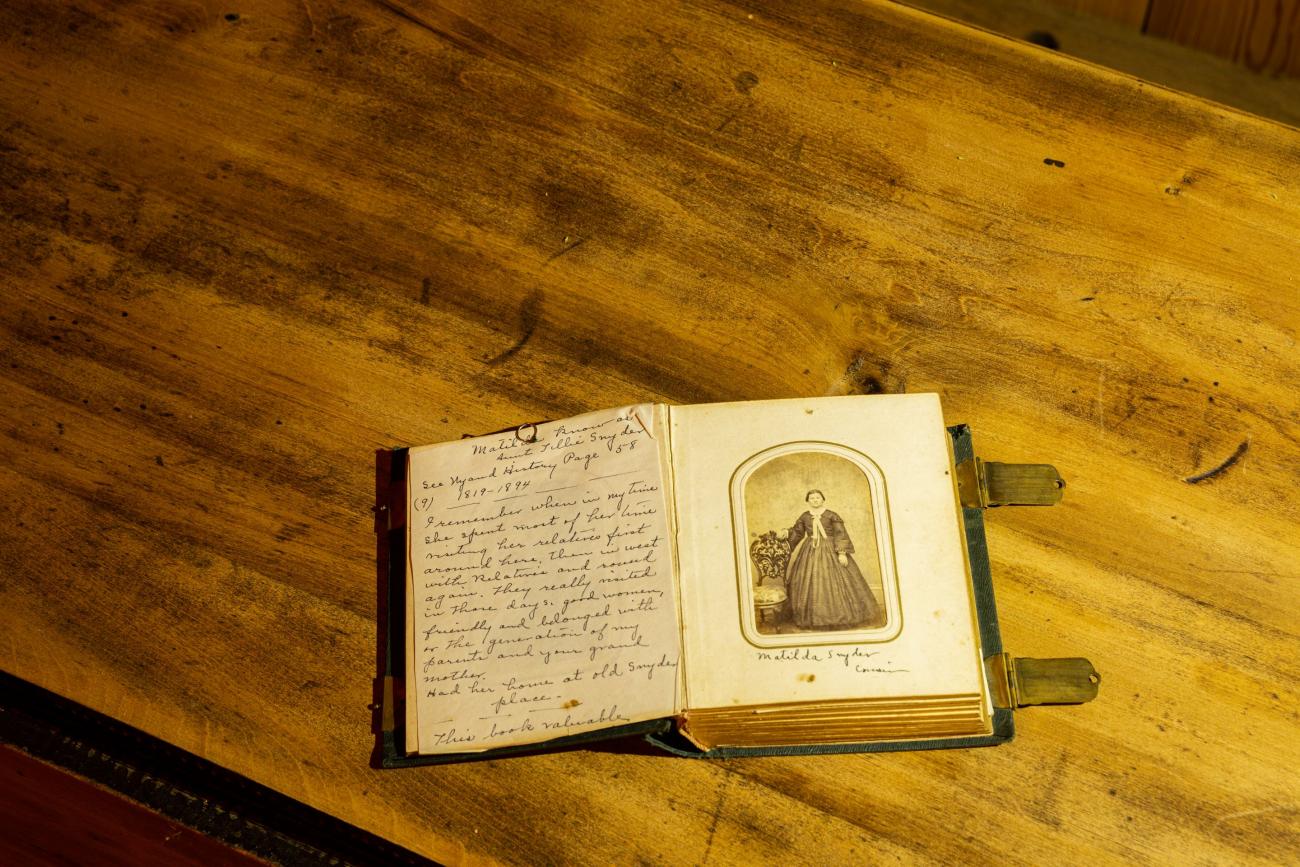 Matilda know as
Aunt Tillie Snyder
See Wyand History Page 58
(9) 1819-1894
I remember when in my time
she spent most of her time
visiting her relatives first
around here, then in west
with Relatives and round
again. They really visited
in those days. good women,
friendly and belonged with
or the generation of my
parents and your grand
mother.
Had her home at old Snyder
place.
This book valuable
Matilda Snyder
Cousin